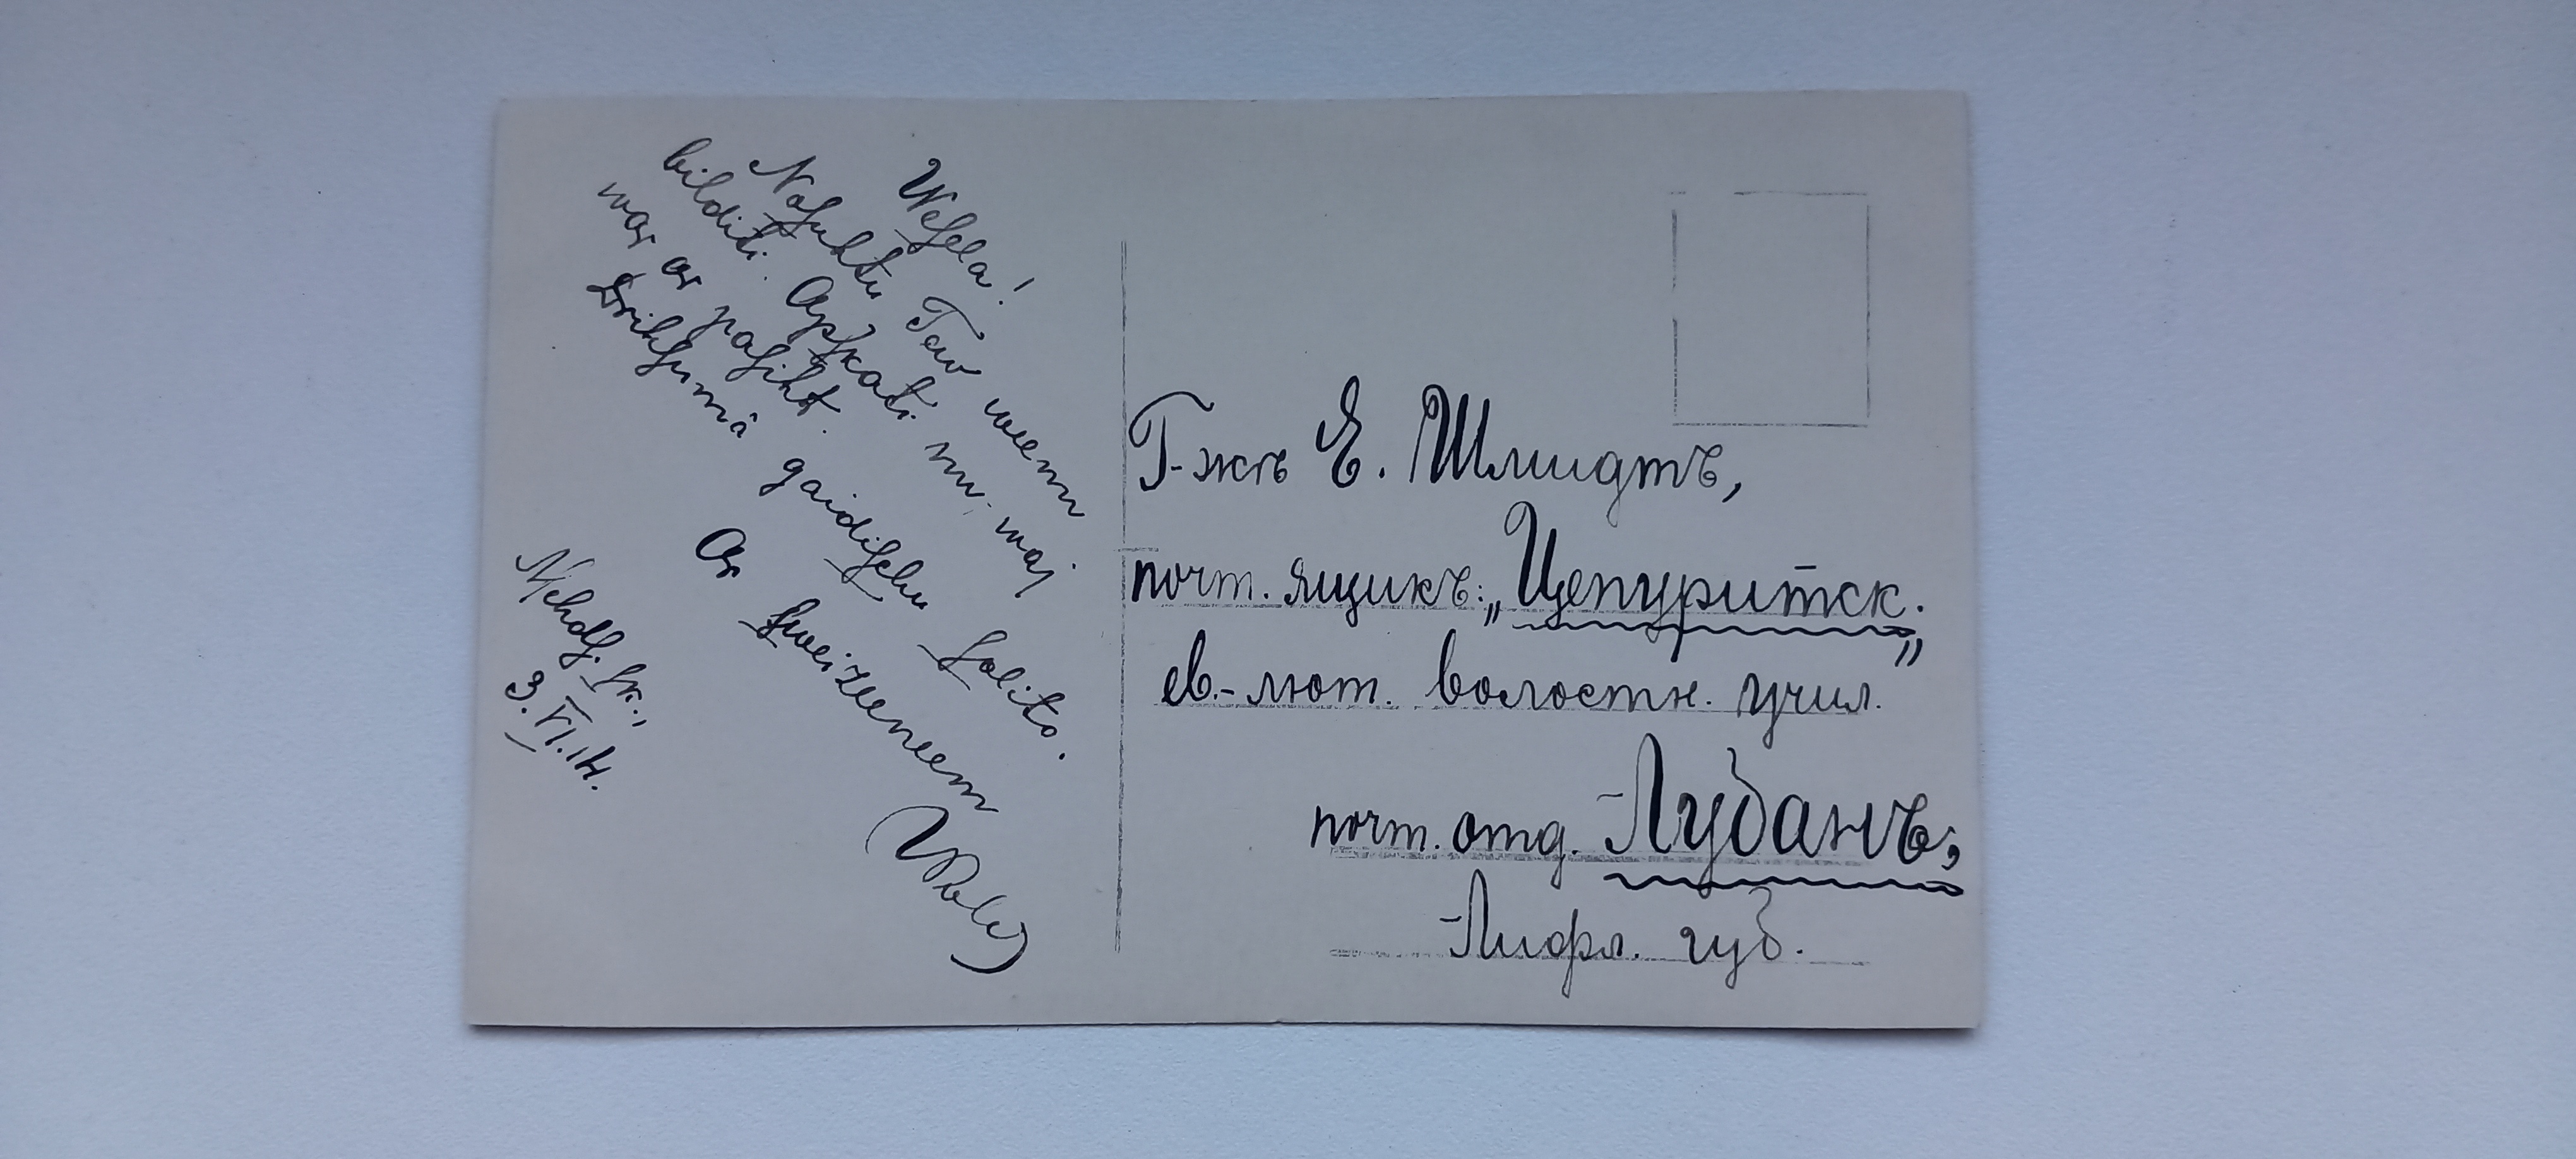 Weſela!
Noſuhtu Tew weenu
bilditi. Apſkati nu, waj
war ar paſiht.
Drihſumâ gaidiſchu ſolito.
Ar ſweizeeneem
Mehdſ. ſk.,
3. VI. 14.
Г-жѣ Е. Шмидтъ,
почт. ящикъ: „Цепуритск.„
ев.-лют. волостн. учил.
почт. отд. Лубанъ,
Лифл. губ.